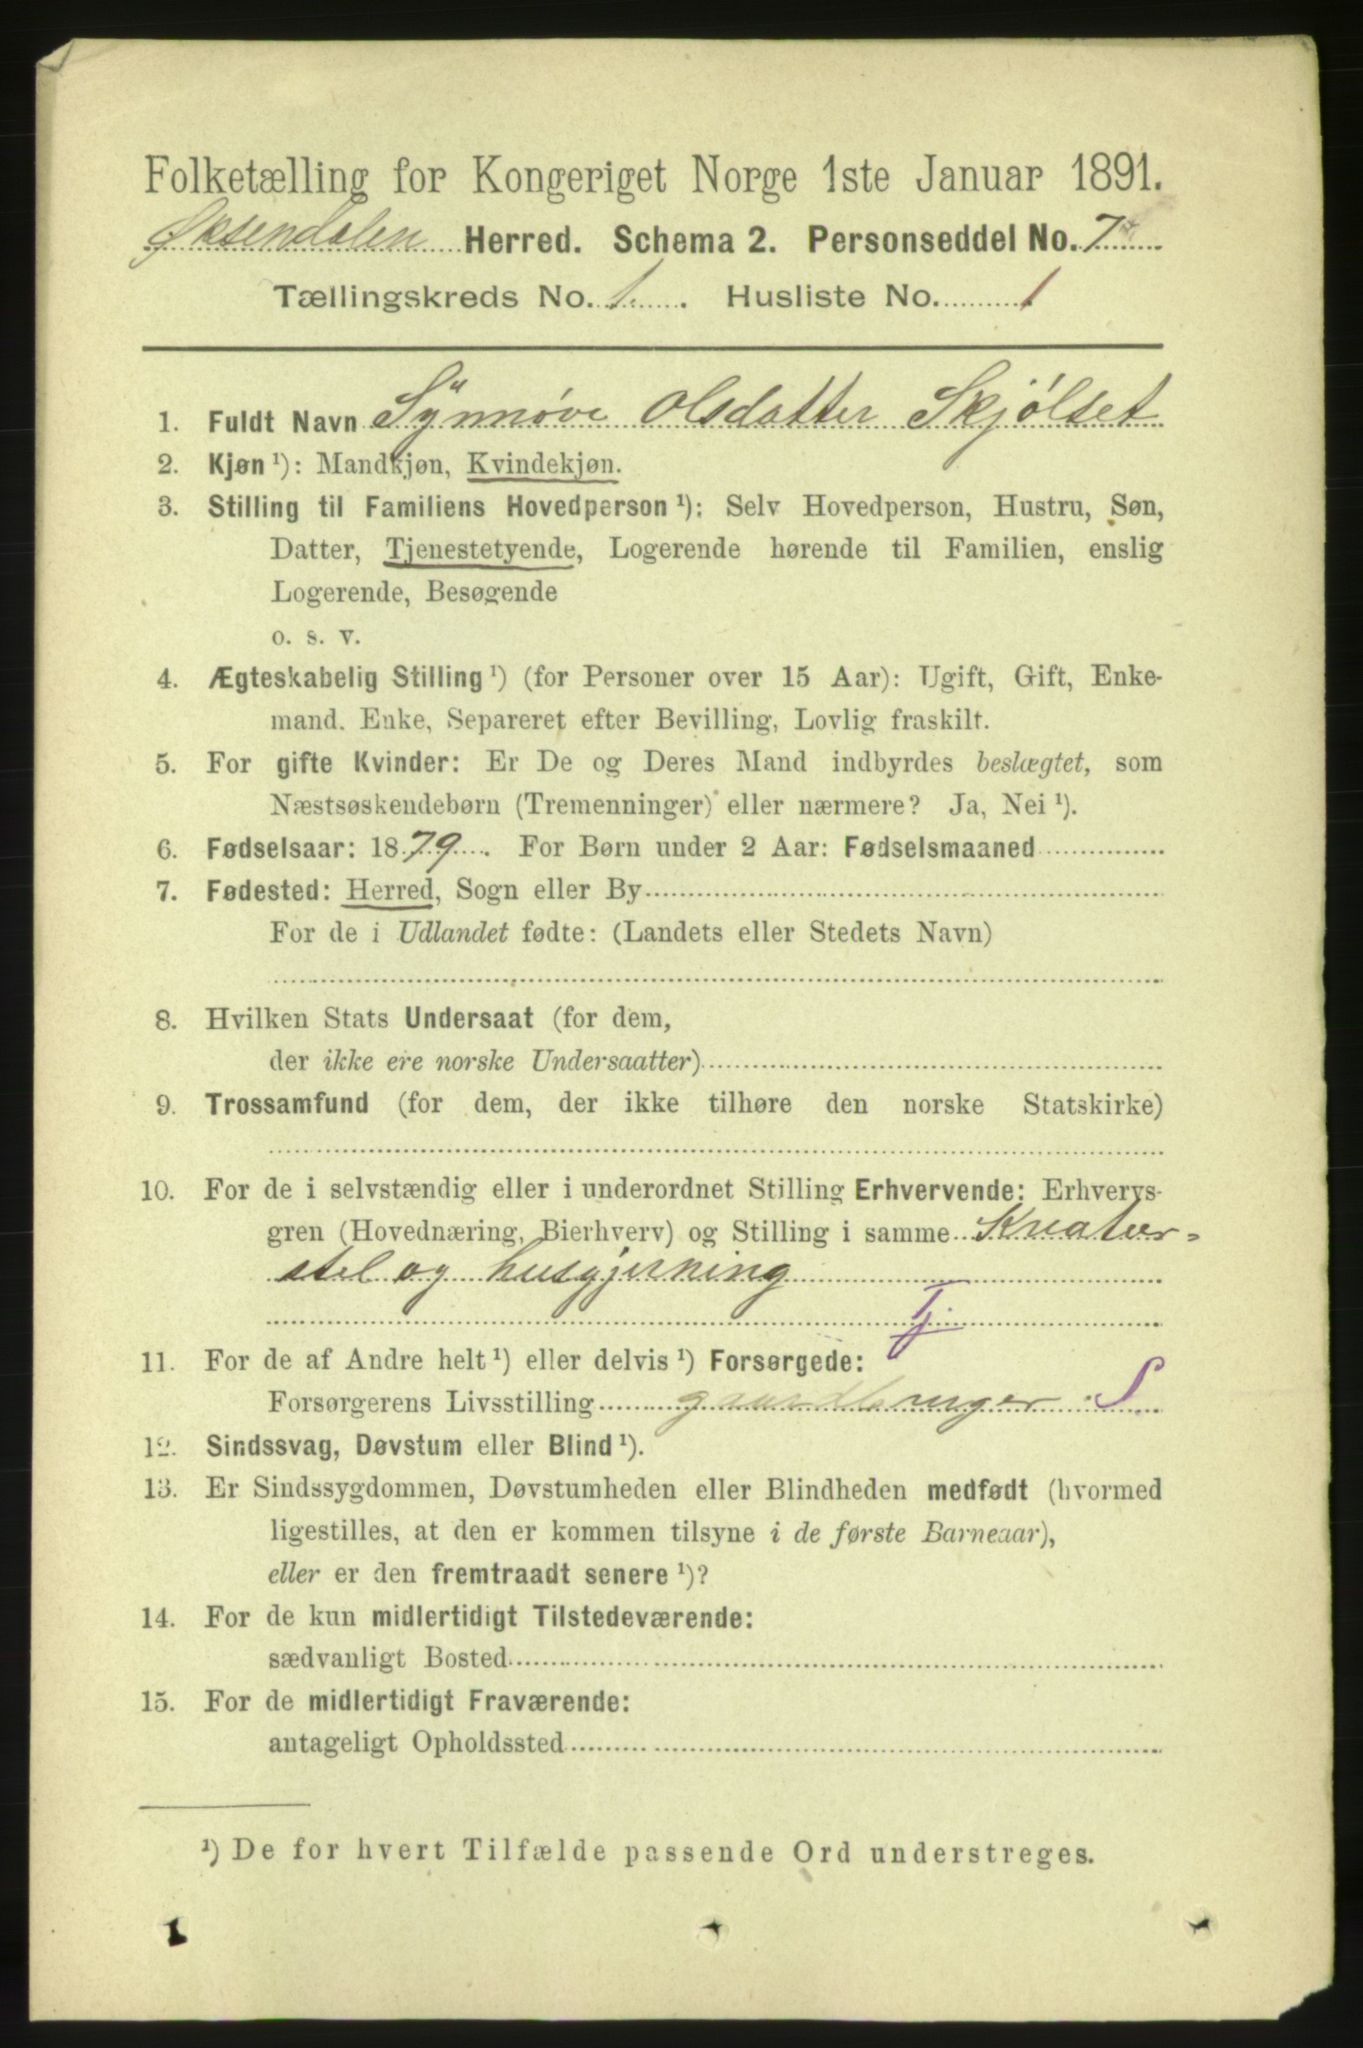 Folketælling for Kongeriget Norge 1ste Januar 1891.
Øksendalen Herred. Schema 2. Personseddel No. 7
Tællingskreds No. 1. Husliste No. 1
1. Fuldt Navn Synnøve Olsdatter Skjølset
2. Kjøn ¹): Mandkjøn, Kvindekjøn.
3. Stilling til Familiens Hovedperson ¹): Selv Hovedperson, Hustru, Søn,
Datter, Tjenestetyende, Logerende hørende til Familien, enslig
Logerende, Besøgende
o. s. v.
4. Ægteskabelig Stilling ¹) (for Personer over 15 Aar): Ugift, Gift, Enke-
mand. Enke, Separeret efter Bevilling, Lovlig fraskilt.
5. For gifte Kvinder: Er De og Deres Mand indbyrdes beslægtet, som
Næstsøskendebørn (Tremenninger) eller nærmere? Ja, Nei ¹).
6. Fødselsaar: 1879. For Børn under 2 Aar: Fødselsmaaned
7. Fødested: Herred, Sogn eller By
For de i Udlandet fødte: (Landets eller Stedets Navn)
8. Hvilken Stats Undersaat (for dem,
der ikke ere norske Undersaatter)
9. Trossamfund (for dem, der ikke tilhøre den norske Statskirke)
10. For de i selvstændig eller i underordnet Stilling Erhvervende: Erhvervs-
gren (Hovednæring, Bierhverv) og Stilling i samme Kreatur=
stel og husgjerning
Tj.
11. For de af Andre helt ¹) eller delvis ¹) Forsørgede:
Forsørgerens Livsstilling gaardbruger S
12. Sindssvag, Døvstum eller Blind ¹).
13. Er Sindssygdommen, Døvstumheden eller Blindheden medfødt (hvormed
ligestilles, at den er kommen tilsyne i de første Barneaar),
eller er den fremtraadt senere ¹)?
14. For de kun midlertidigt Tilstedeværende:
sædvanligt Bosted
15. For de midlertidigt Fraværende:
antageligt Opholdssted
¹) De for hvert Tilfælde passende Ord understreges.